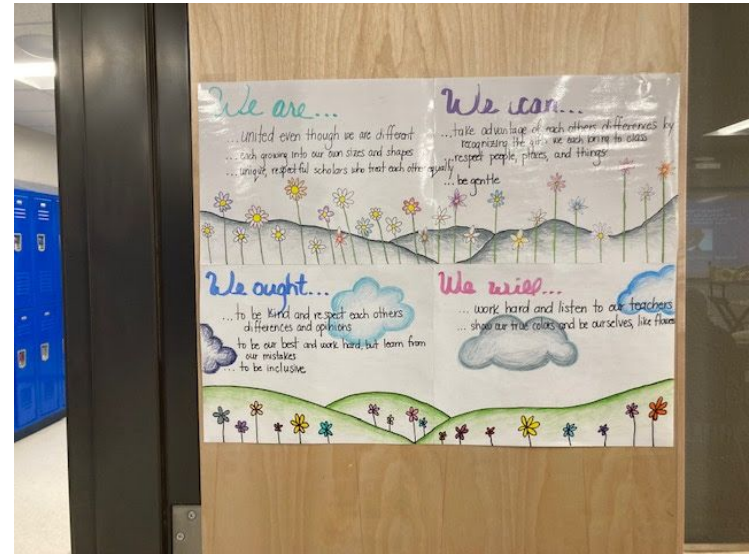 We are...
...united even though we are different
...each growing into our own sizes and shapes
...unique, respectful scholars who treat each other equally
We can...
...take advantage of each others differences by
recognizing the gifts we each bring to class
...respect people, places, and things
...be gentle
We ought...
...to be kind and respect each others
differences and opinions
to be our best and work hard, but learn from
our mistakes
... to be inclusive
We will...
... work hard and listen to our teachers
... show our true colors and be ourselves, like flowers